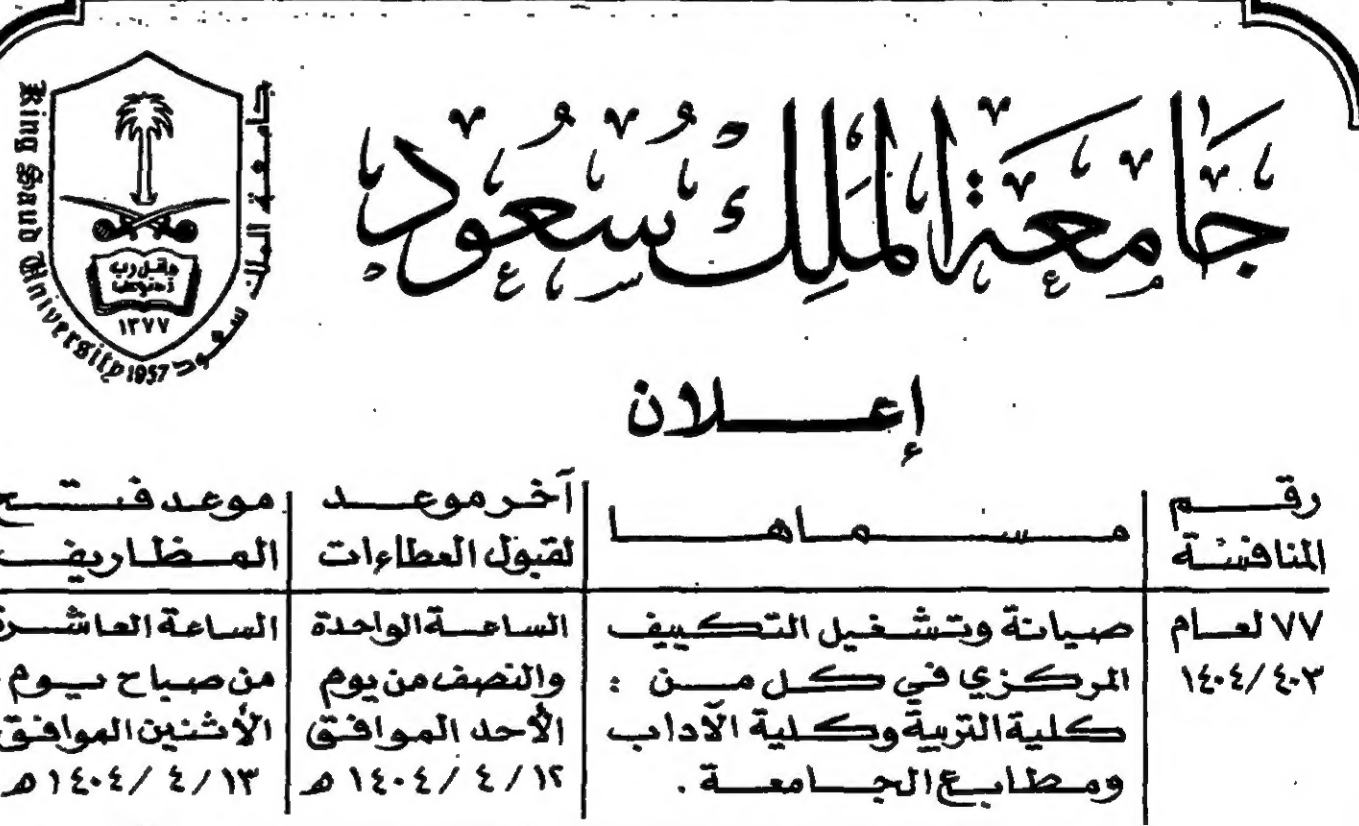 جامعة الملك سعود
King Saud University 1957
جَامعَة المَلِك سُعُود
وقل رب
زدني علما
١٣٧٧
إعـــلان
رقـم المنافسـة
مـسـمـاهـا
آخر موعـد لقبول العطاءات
موعد فتـح المـظـاريف
٧٧ لعـام
١٤٠٤/٤٠٣
صيانة وتـشـغيل التـكـييف
المركـزي في كـل مـن :
كـلية التربية وكـلية الآداب
ومـطـابـع الجـامعـة .
الساعـة الواحدة
والنصف من يوم
الأحد المـوافـق
١٤٠٤/٤/١٢ هـ
الساعة العاشـرة
من صبـاح يـوم
الأثنين الموافق
١٤٠٤/٤/١٣ هـ